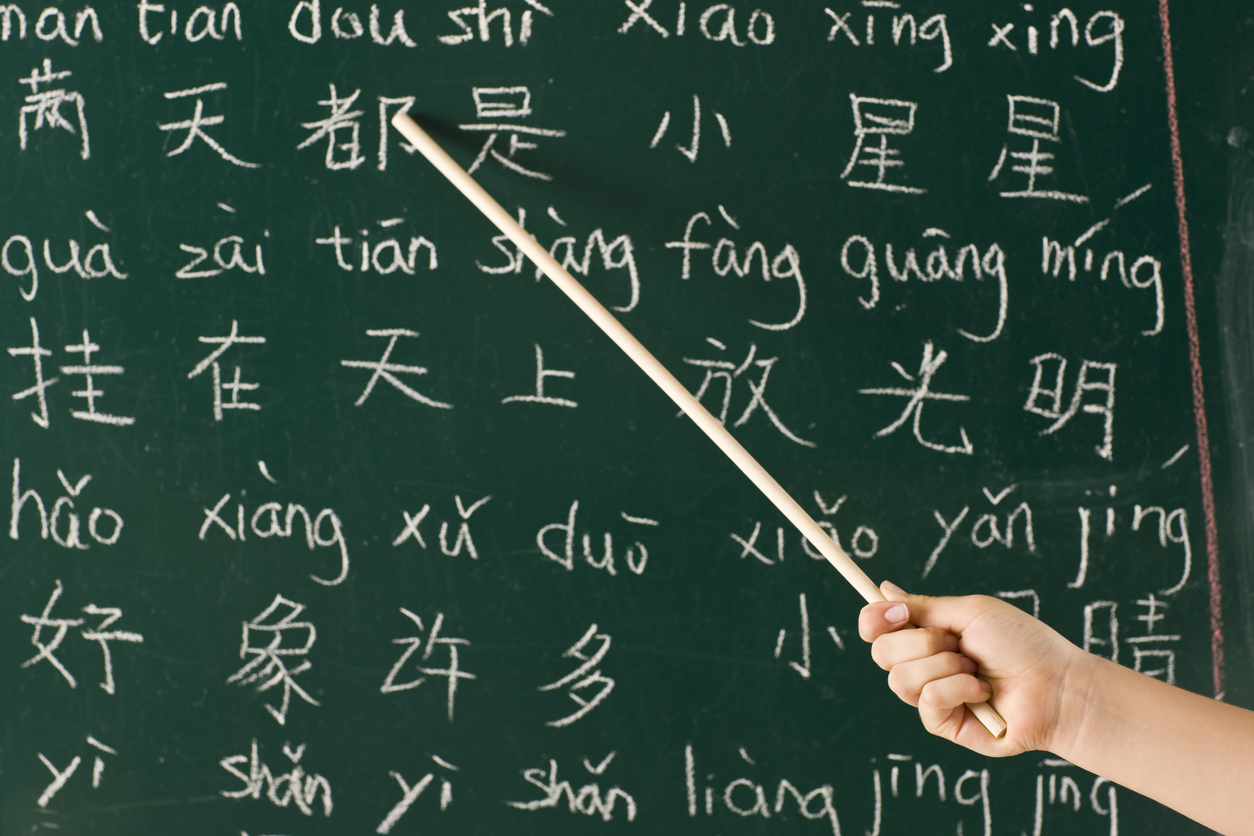 man tian dou shì xiao xīng xing
满天都是小星星
guà zài tiān shàng fàng guāng míng
挂在天上放光明
hǎo xiàng xǔ duō xiǎo yǎn jing
好象许多小睛
yì shǎn yì shǎn liàng jīng jīng